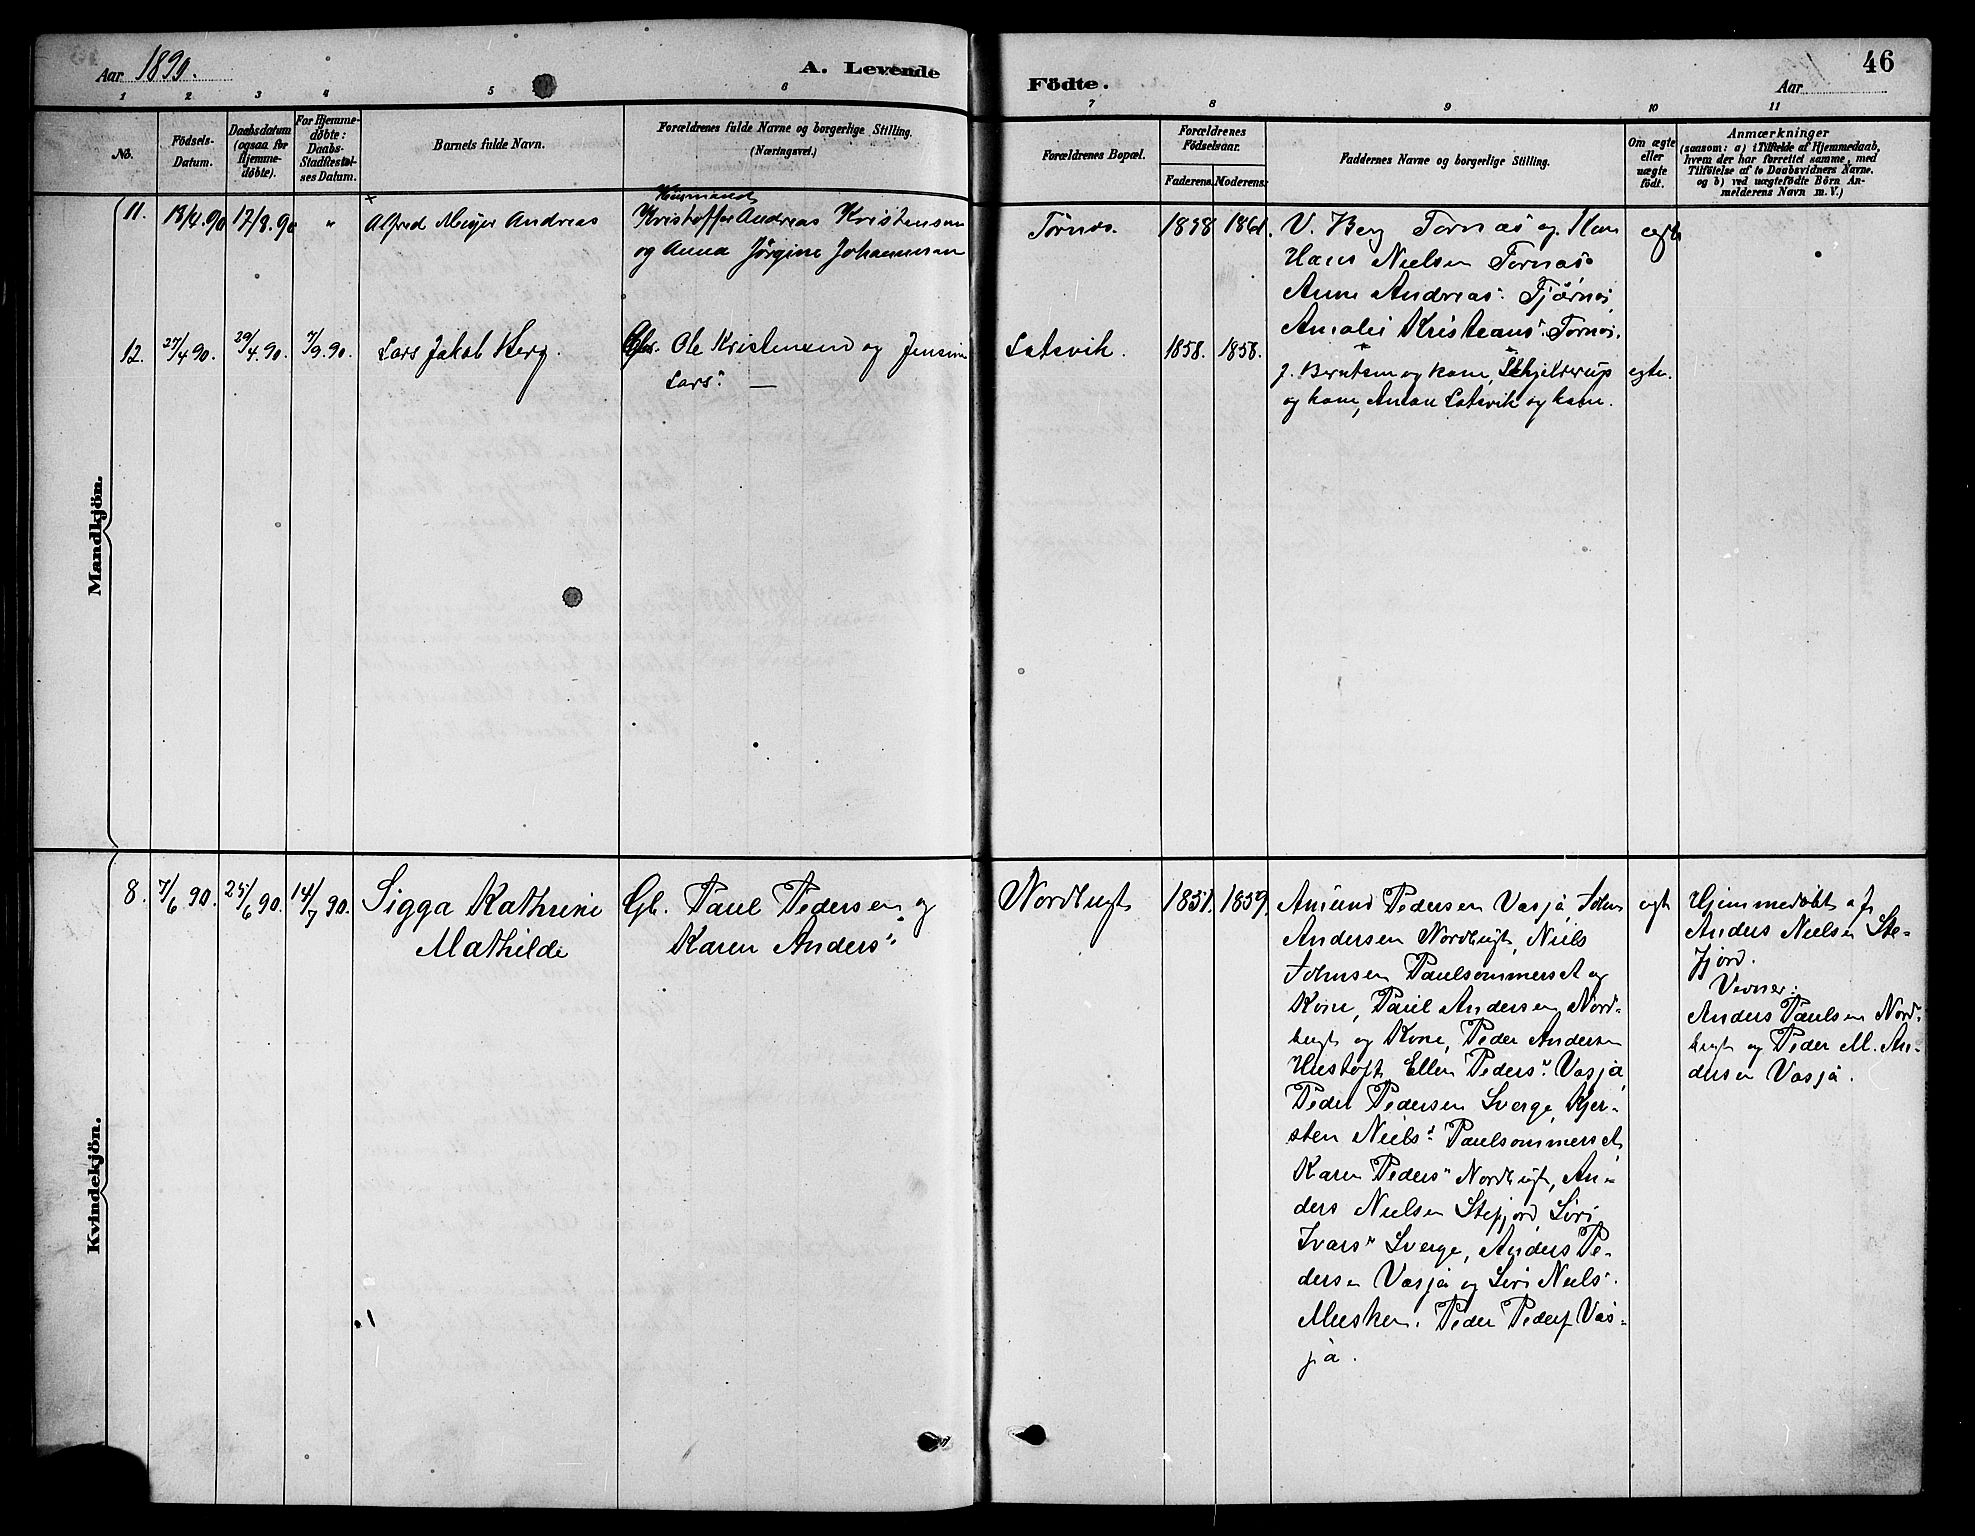 Aar 1890.
A. Levende
Födte.
Aar
46
1 2 3 4 5 6 7 8 9 10 11
No.
Födsels-
Datum.
Daabsdatum
(ogsaa for
Hjemme-
döbte).
For Hjemme-
döbte:
Daabs-
Stadfæstel-
ses Datum.
Barnets fulde Navn.
Forældrenes fulde Navne og borgerlige Stilling.
(Næringsvei.)
Forældrenes Bopæl.
Forældrenes
Födselsaar.
Faderens.
Moderens.
Faddernes Navne og borgerlige Stilling.
Om ægte
eller
uægte
födt.
Anmærkninger
(saasom: a) i Tilfælde af Hjemmedaab,
hvem der har forrettet samme, med
Tilföielse af to Daabsvidners Navne.
og b) ved uægtefödte Börn An-
melderens Navn m. V.)
Mandkjön.
11. 18/4.90 17/8.90 " Alfred Meyer Andreas
Husmand
Kristoffer Andreas Kristensen
og Anna Jörgine Johannesen
Tørnes. 1858 1861.
V. Berg Tornæs og Kone
Hans Nielsen Tornæs
Anne Andreas: Tjørnes
Amalie Kristians: Tornes.
ægte
12. 27/4 90. 29/4.90. 7/9.90. Lars Jakob Berg.
Gbr. Ole Kristensen og Jensine
Lars: —
Lotsvik. 1858. 1858.
J. Berntsen og kone, Schjelderup
og kone, Anton Lotsvik og kone.
egte.
Kvindekjön.
8. 7/6 90. 25/6 90. 14/7 90. Sigga Kathrine
Mathilde
Gb. Paul Pedersen og
Karen Anders"
Nordbugt 1851. 1859.
Amund Pedersen Vasja, John
Andersen Nordbugt, Niels
Johnsen Paulsommerset og
Kone, Paul Andersen Nord-
bugt og Kone, Peder Andersen
Hustoft Ellen Peders" Vasja
Peder Pedersen Sverge, Kjer-
sten Niels" Paulsommerset
Karen Peders" Nordbugt, An-
ders Nielsen Stefjord, Siri
Ivars" Sverge, Anders Pe-
dersen Vasja og Siri Niels".
Musken. Peder Peders Vas-
ja.
egt
Hjemmedöbt af
Anders Nielsen Ste-
fjord.
Vidner:
Anders Paulsen Nord-
bugt og Peder M. An-
dersen Vasja.